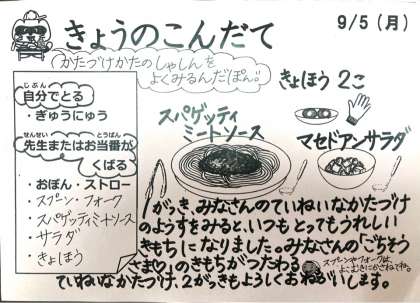 9/5(月)
きょうのこんだて
かたづけかたのしゃしんを
よくみるんだぽん!!
じぶん
自分でとる
・ぎゅうにゅう
せんせい とうばん
先生またはお当番が
くばる
・おぼん・ストロー
・スプーン・フォーク
・スパゲッティミートソース
・サラダ
・きょほう
きょほう 2こ
スパゲッティ
ミートソース
マセドアンサラダ
1がっき、みなさんのていねいなかたづけ
のようすをみると、いつもとってもうれしい
きもちになりました。みなさんの「ごちそう
さま♡」のきもちがつたわる
ていねいなかたづけ、2がっきもよろしくおねがいします。
スプーンやフォークは、
よこむきにかさねてね。